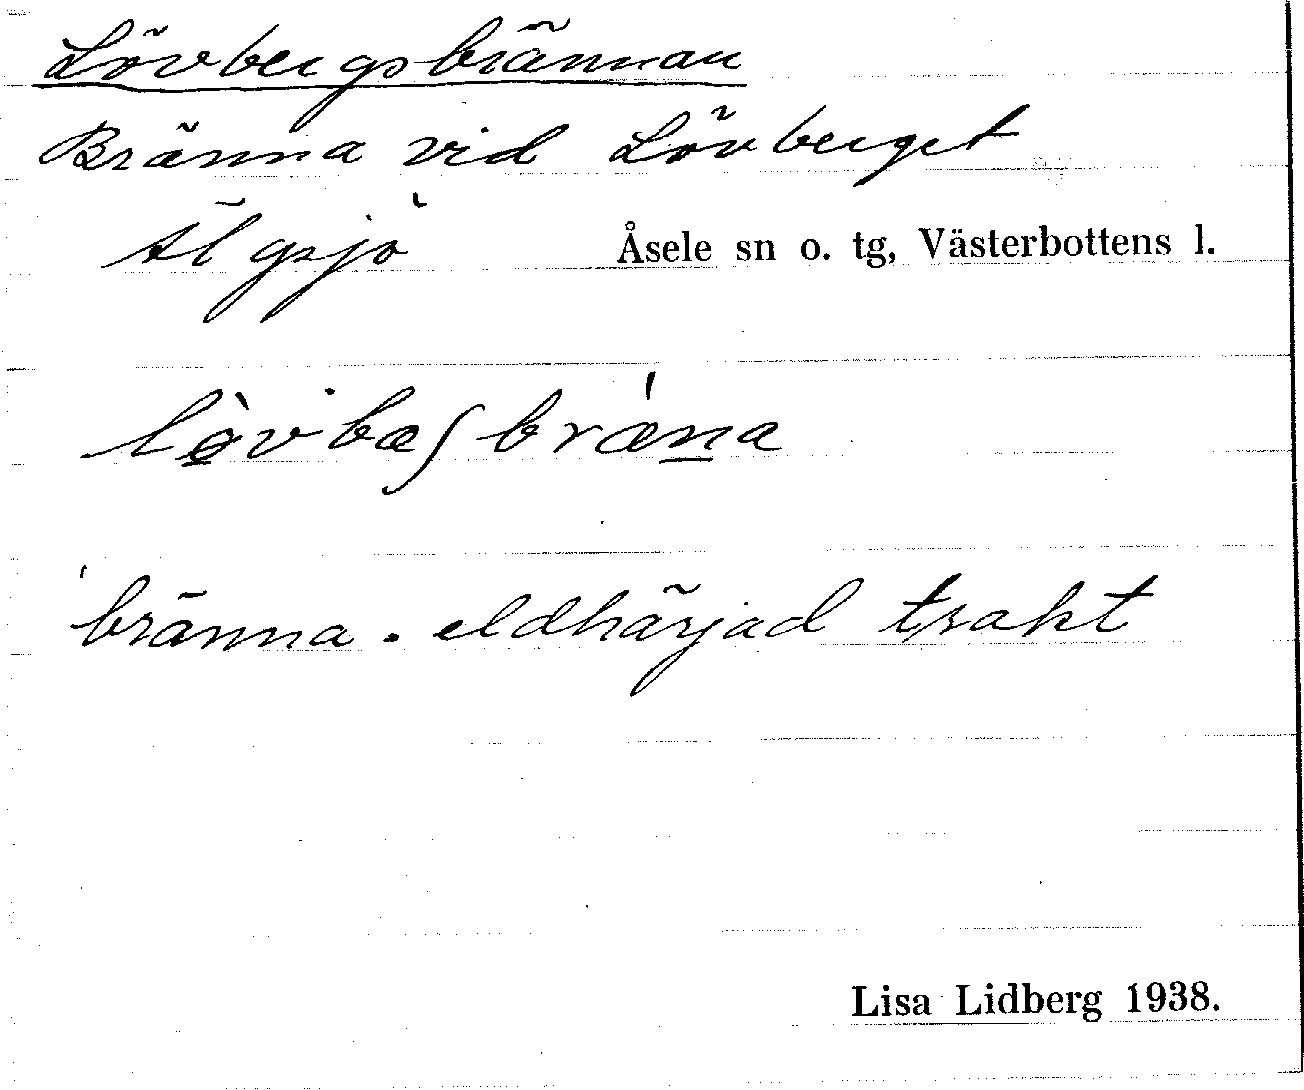 Lövbergsbrännan
Bränna vid Lövberget
Älgsjö Åsele sn o. tg, Västerbottens l.
lø̀vbæʃbrǽna
bränna. eldhärjad trakt
Lisa Lidberg 1938.